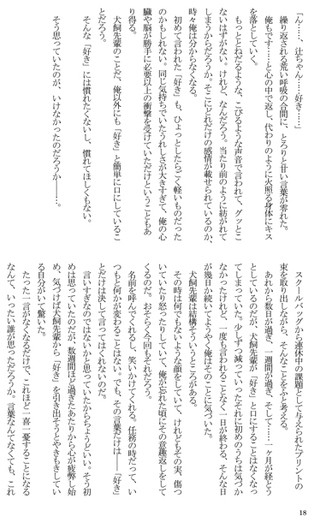 「ん……、辻ちゃん……好き……」
繰り返される荒い呼吸の合間に、とろりと甘い言葉が零れた。
俺もです……と心の中で返し、代わりのように火照る身体にキス
を落としていく。
もっととねだるような、こびるような声音で言われて、グッとこ
ないはずがない。けれど、なんだろう。当たり前のように紡がれて
しまうからだろうか、そこにどれだけの感情が載せられているのか、
時々俺は分からなくなる。
初めて言われた「好き」も、ひょっとしたらごく軽いものだった
のかもしれない。同じ気持ちでいたうれしさが大きすぎて、俺の心
臓や脳が勝手に必要以上の衝撃を受けていただけということもあ
り得る。
犬飼先輩のことだ、俺以外にも「好き」と簡単に口にしているこ
とだろう。
そんな「好き」には慣れたくないし、慣れてほしくもない。
そう思っていたのが、いけなかったのだろうか――。
スクールバッグから連休中の課題として与えられたプリントの
束を取り出しながら、そんなことをふと考える。
あれから数日が過ぎ、一週間が過ぎ、そして……一ヶ月が経とう
としているのだが、犬飼先輩が「好き」と口にすることはなくなっ
てしまっていた。少しずつ減っていったそれに初めのうちは気づか
なかったけれど、一度も言われることなく一日が終わる、そんな日
が幾日か続いてようやく俺はそのことに気づいた。
犬飼先輩は結構そういうところがある。
その時は何でもないような顔をしていて、けれどもその実、傷つ
いていたり怒ったりしていて、俺が忘れた頃にその意趣返しをして
くるのだ。おそらく今回もそれだろう。
名前を呼んでくれるし、笑いかけてくれる。任務の時だって、い
つもと何かが変わることはない。でも、その言葉だけは――「好き」
とだけは決して言ってはくれないのだ。
言いすぎなのではないかと思っていたからちょうどいい。そう初
めは思っていたのだが、数週間ほど過ぎたあたりから心が疲弊し始
め、気づけば犬飼先輩から「好き」を引き出そうとやきもきしてい
る自分がいて驚いた。
たった一言がなくなるだけで、これほど一喜一憂することになる
なんて、いったい誰が思っただろうか。言葉なんてなくても、これ
18